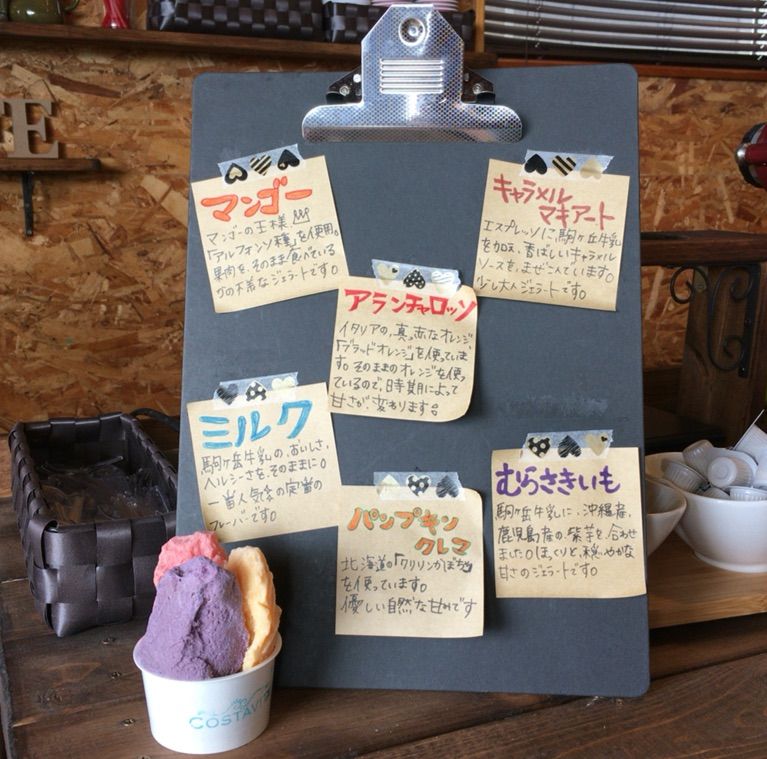 マンゴー
マンゴーの王様
「アルフォンソ種」を使用。
果肉を、そのまま食べている
かの様なジェラートです。
キャラメル
マキアート
エスプレッソに、駒ヶ岳牛乳
を加え、香ばしいキャラメル
ソースを、まぜこんでいます。
少し大人ジェラートです。
アランチャロッソ
イタリアの、真っ赤なオレンジ、
「ブラッドオレンジ」を使っていま
す。そのままのオレンジを使っ
ているので、時期によって
甘さが、変わります。
ミルク
駒ヶ岳牛乳の、おいしさ、
ヘルシーさを、そのままに。
一番人気の定番の
フレーバーです。
パンプキン
クレマ
北海道の「クリリンかぼちゃ」
を使っています。
優しい自然な甘みです
むらさきいも
駒ヶ岳牛乳に、沖縄産、
鹿児島産の、紫芋を、合わせ
ました。ほっくりと、穏やかな
甘さのジェラートです。
COSTAVI
E